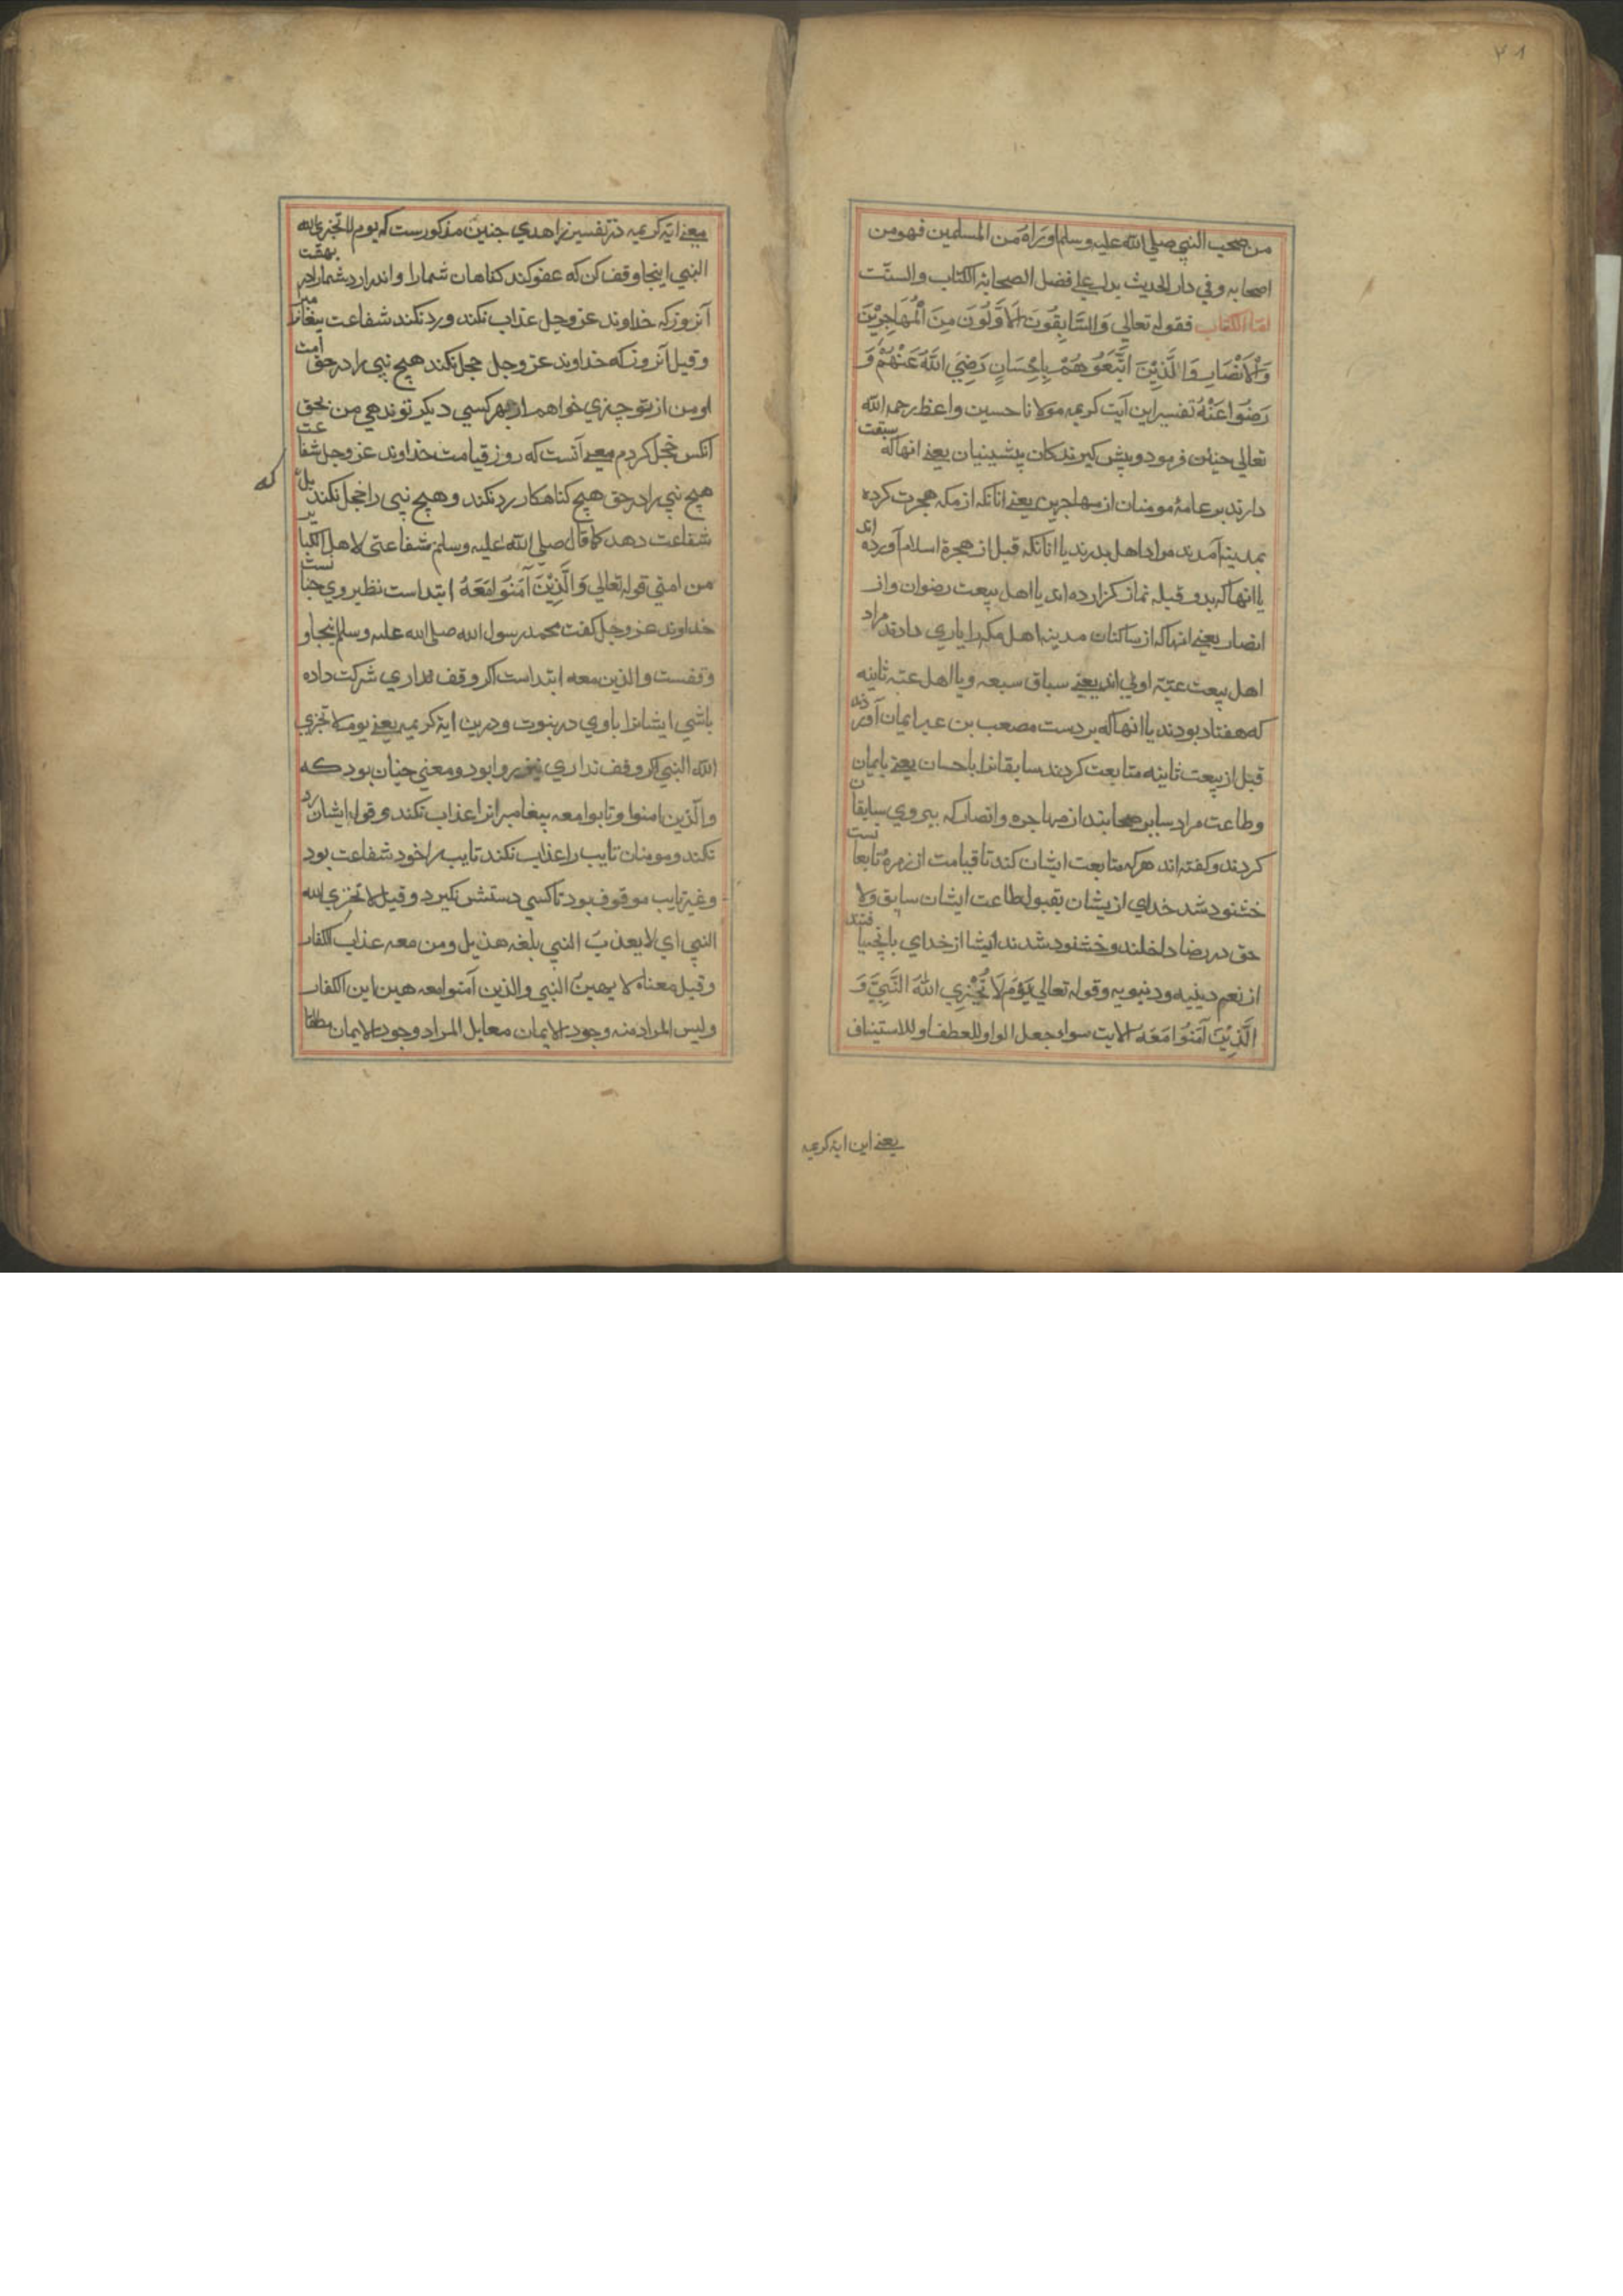 ۴۸
من صحب النبي صلي الله عليه وسلم اوراه من المسلمين فهو من
اصحابه وفي دار الحديث يدل علي فضل الصحابة الكتاب والسنت
اما الكتاب فقوله تعالي وَالسَّابِقُونَ الْاَوَّلُونَ مِنَ الْمُهَاجِرِيْنَ
وَالْاَنْصَارِ وَالَّذِيْنَ اتَّبَعُوهُمْ بِاِحْسَانٍ رَضِيَ اللّٰهُ عَنْهُمْ وَ
رَضُوا عَنْهُ تفسير اين آيت كريمه مولانا حسين واعظ رحمه الله
تعالي چنين فرمود وپيش كيرندكان پيشينيان يعني انهاكه سبقت
دارند بر عامهٔ مومنان از مهاجرين يعني انانكه از مكه هجرت كرده
بمدينه آمدند مراد اهل بدرند يا انانكه قبل از هجرة اسلام آورده اند
يا انهاكه بدو قبله نماز كزارده اند يا اهل بيعت رضوان واز
انصار يعني انهاكه از ساكنان مدينه اهل مكه را ياري دادند مراد
اهل بيعت عتبهٔ اولي اند يعني سباق سبعه ويا اهل عتبه ثانيه
كه هفتاد بودند يا انهاكه بر دست مصعب بن عمير ايمان آورده
قبل از بيعت ثانيه متابعت كردند سابقانرا باحسان يعني بايمان
وطاعت مراد ساير صحابتند از مهاجره وانصار كه پيروي سابقان
كردند وكفته اند هركه متابعت ايشان كند تا قيامت از زمرهٔ تابعانست
خشنود شد خداي ازيشان بقبول طاعت ايشان سابق ولا
حق در رضا داخلند وخشنود شدند ايشان از خداي بانچه يافتند
از نعم دينيه ودنيويه وقوله تعالي يَوْمَ لَا يُخْزِي اللّٰهُ النَّبِيَّ وَ
الَّذِيْنَ آمَنُوا مَعَهُ الايت سواء جعل الواو للعطف او للاستيناف
يعني اين اية كريمه
معني اية كريمه در تفسير زاهدي چنين مذكورست كه يوم لا تخزي الله
النبي اينجا وقف كن كه عفو كند كناهان شمارا واندر ارد شمارا در بهشت
آنروز كه خداوند عز وجل عذاب نكند ورد نكند شفاعت پيغامبر
وقيل آنروز كه خداوند عز وجل خجل نكند هيچ نبي را در حق امت
او من از تو چيزي خواهم از بهر كسي ديكر تو ندهي من بحق
انكس خجل كردم معني آنست كه روز قيامت خداوند عز وجل شفاعت
هيچ نبي را در حق هيچ كناهكار رد نكند وهيچ نبي را خجل نكند بل كه
شفاعت دهد كما قال صلي الله عليه وسلم شفاعتي لاهل الكباير
من امتي قوله تعالي وَالَّذِيْنَ آمَنُوا مَعَهُ ابتداست نظير وي چنانست
خداوند عز وجل كفت محمد رسول الله صلي الله عليه وسلم اينجا و
وقفست والذين معه ابتداست اكر وقف نداري شركت داده
باشي ايشانرا با وي در نبوت ودرين اية كريمه يعني يوم لا تخزي
الله النبي اكر وقف نداري نيز روا بود ومعني چنان بود كه
والذين امنوا وتابوا معه پيغامبرانرا عذاب نكند وقول ايشان رد
نكند ومومنان تايب را عذاب نكند تايب را خود شفاعت بود
وغير تايب موقوف بود تا كسي دستش نكيرد وقيل لا تخزي الله
النبي اي لا يعذب النبي بلغه هذيل ومن معه عذاب الكفار
وقيل معناه لا يهين النبي والذين آمنوا معه هين اين الكفار
وليس المراد منه وجود الايمان معابل المراد وجود الايمان مطلقا